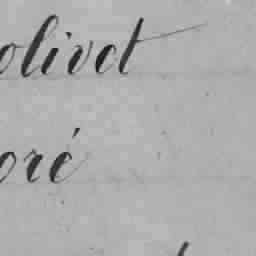 olivet
oré